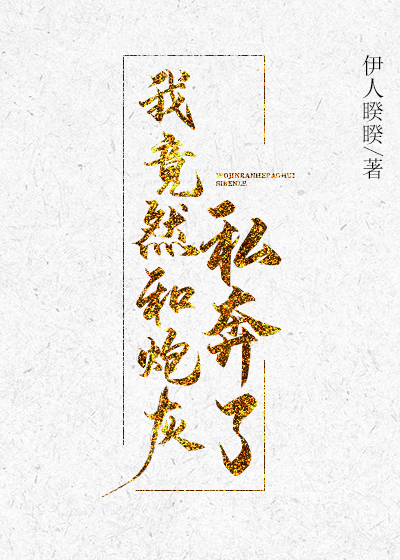 我竟然和炮灰
私奔了
WOJINRANHEPAOHUI
SIBENLE
伊人睽睽/著